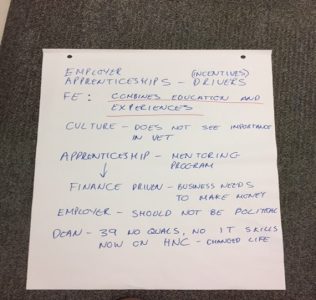 EMPLOYER (INCENTIVES)
APPRENTICESHIPS - DRIVERS
FE: COMBINES EDUCATION AND
EXPERIENCES
CULTURE - DOES NOT SEE IMPORTANCE
IN VET
APPRENTICESHIP - MENTORING
↓ PROGRAM
FINANCE DRIVEN - BUSINESS NEEDS
TO MAKE MONEY
EMPLOYER - SHOULD NOT BE POLITICAL
DEAN - 39 NO QUALS, NO IT SKILLS
NOW ON HNC - CHANGED LIFE